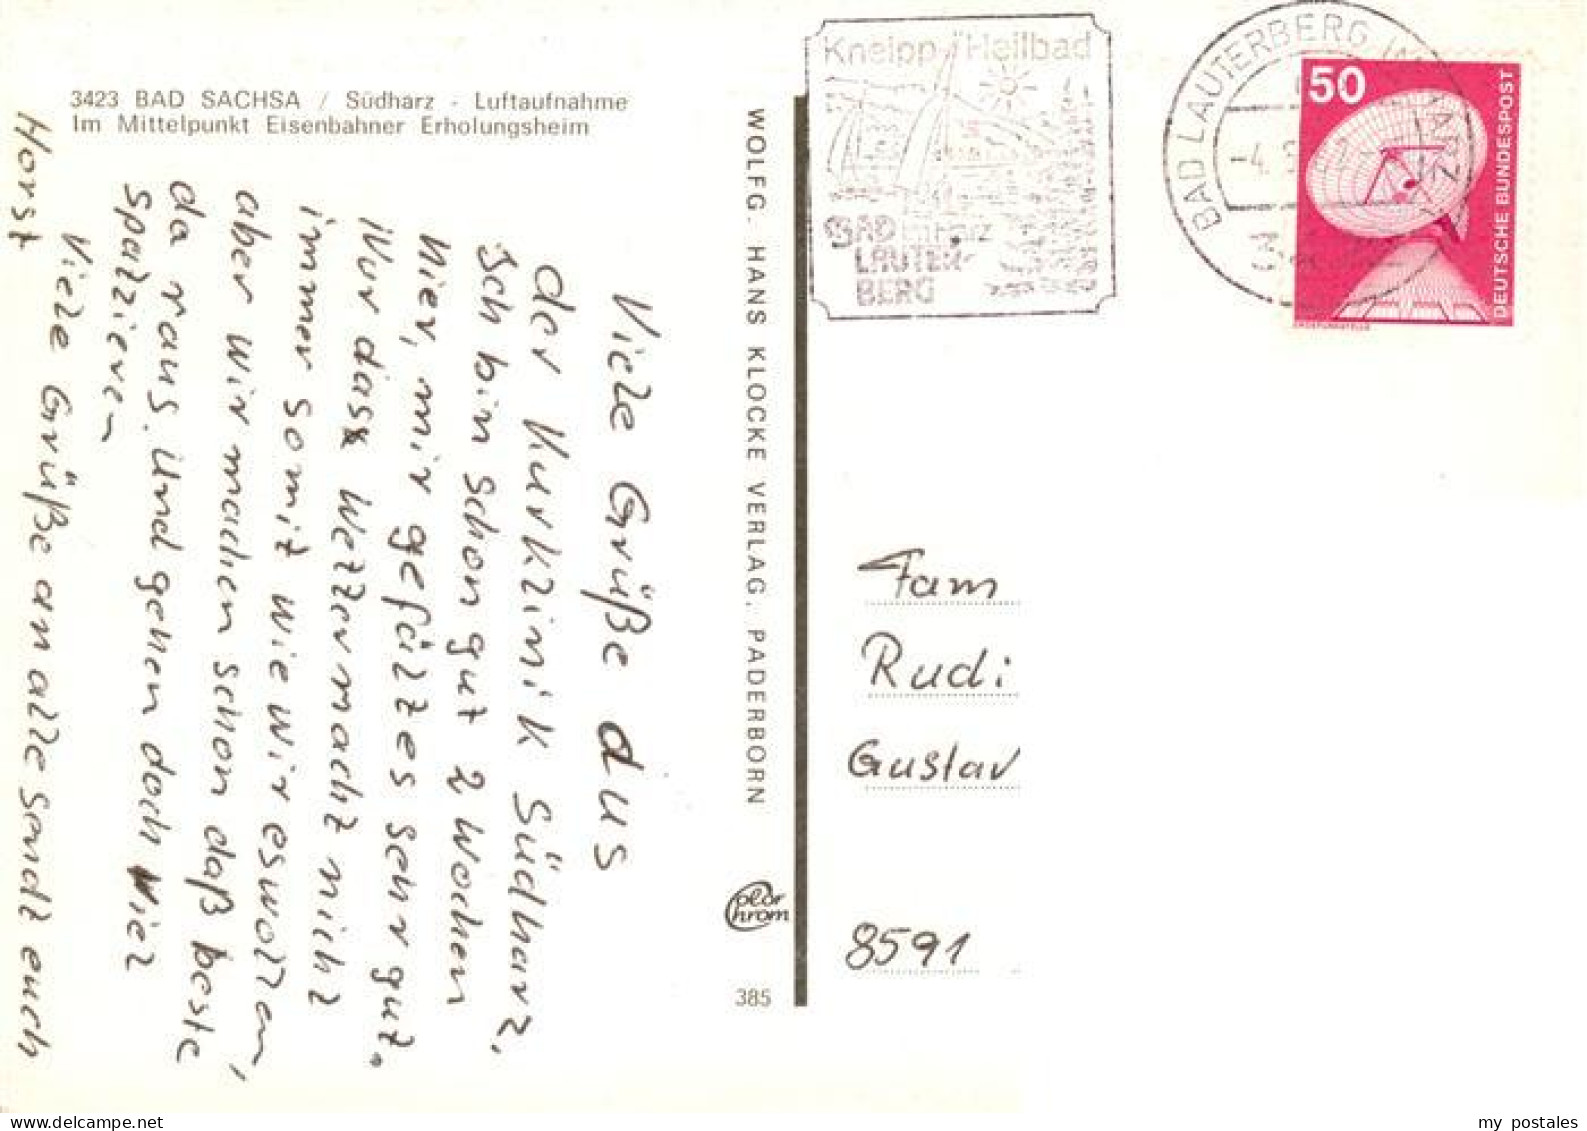 3423 BAD SACHSA / Südharz - Luftaufnahme
Im Mittelpunkt Eisenbahner Erholungsheim
Viele Grüße aus
der Kurklinik Südharz,
Ich bin schon gut 2 Wochen
hier, mir gefällt es sehr gut.
Nur das Wetter macht nicht
immer so mit wie wir es wollen,
aber wir machen schon daß beste
da raus. Und gehen doch viel
spazieren
Viele Grüße an alle sendt euch
Horst
WOLFG. HANS KLOCKE VERLAG, PADERBORN
Color
Chrom
385
Kneipp-Heilbad
BAD im Harz
LAUTER-
BERG
BAD LAUTERBERG IM HARZ
-4.
50
DEUTSCHE BUNDESPOST
ERDFUNKSTELLE
Fam
Rudi
Gustav
8591
my postales